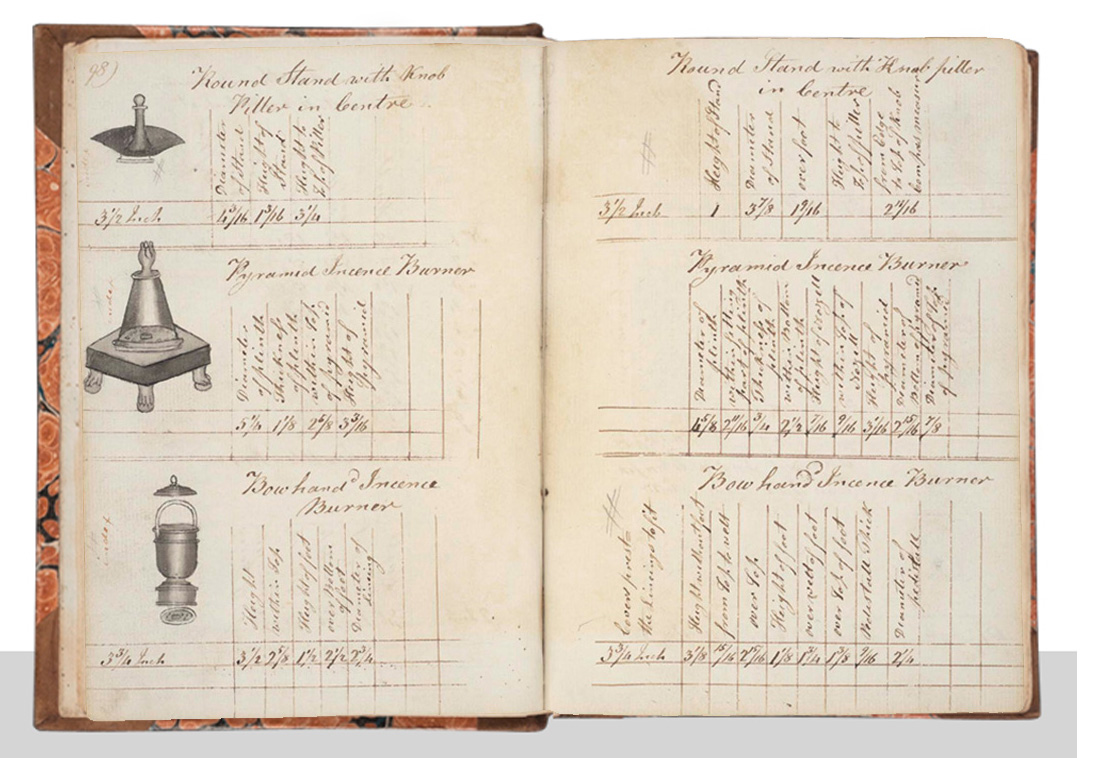 98)
Round Stand with Knob
Piller in Centre
Diameter
of Stand
Height of
Stand
Height to
Top of Piller
3 1/2 Inch 4 3/16 1 3/16 3 1/4
Pyramid Incence Burner
index
Diameter
of plinth
Thickness
of plinth
within Top
of pyramid
Height of
Pyramid
5 1/4 1 1/8 2 5/8 3 3/16
Bow hand^d Incence
Burner
index
Height
within Top
Height of foot
over Bottom
of foot
Diameter of
lineing
3 3/4 Inch 3 1/2 2 5/8 1 1/2 2 1/2 2 3/4
Round Stand with Knob piller
in Centre
Height of Stand
Diameter
of Stand
over foot
Height to
Top of piller
from Edge
to Top of Knob
Compas measure
3 1/2 Inch 1 3 7/8 1 9/16 2 11/16
Pyramid Incence Burner
Diameter of
plinth
within fitting
part of plinth
Thickness of
plinth
within Bottom
of plinth
Height of
within Top of
Height of
pyramid
Diameter of
Bottom of pyramid
Diameter of Top
of pyramid
4 5/8 2 11/16 3/4 2 1/2 7/16 9/16 3 1/16 2 15/16 7/8
Bow hand^d Incence Burner
Cover part to
the lineings to fit
Height without foot
from Top to nutt
over Top
Height of foot
over nutt of foot
over Top of foot
Pedestall Thick
Diameter of
pedestall
3 3/4 Inch 3 1/8 15/16 2 15/16 1 1/8 1 3/4 1 3/8 9/16 2 1/4